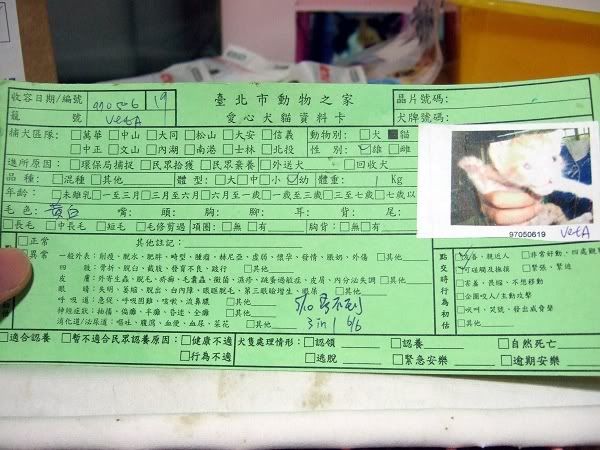 收容日期/編號 970506 19 臺北市動物之家 晶片號碼:
籠 號 VetA 愛心犬貓資料卡 犬牌號碼:
捕犬區隊: □萬華 □中山 □大同 □松山 □大安 □信義 動物別: □犬 ■貓
□中正 □文山 □內湖 □南港 □士林 □北投 性 別: □雄 □雌
進所原因: □環保局捕捉 □民眾拾獲 □民眾棄養 □外送犬 □回收犬
品 種: □混種 □其他 體 型: □大 □中 □小 □幼 體重: 1 Kg
年齡: □未離乳 □一至三月 □三月至六月 □六月至一歲 □一歲至三歲 □三至七歲 □七歲以
毛 色: 黃白 嘴: 頭: 胸: 腳: 耳: 背: 尾:
□長毛 □中長毛 □短毛 □毛修剪過 項圈: □無 □有 胸背: □無 □有
97050619 VetA
□正常 其他註記:
□異常 一般外表: 削瘦、脫水、肥胖、畸型、腫瘤、赫尼亞、虛弱、懷孕、發情、脹奶、外傷 □其他
四 肢: 骨折、脫臼、截肢、發育不良、跛行 □其他
皮 膚: 外寄生蟲、脫毛、疥癬、毛囊蟲、黴菌、潰瘍、跳蚤過敏症、皮屑、內分泌失調 □其他
眼 睛: 失明、萎縮、脫出、白內障、眼眶脫毛、第三眼瞼增生、眼屎 □其他
呼 吸 道: 急促、呼吸困難、咳嗽、流鼻膿 □其他
神經症狀: 抽搐、偏癱、半癱、昏迷、全癱 □其他
消化道/泌尿道: 嘔吐、腹瀉、血便、血尿、茶花 □其他
3 in 1 6/6
點交時行為初估
親近人 □非常好動、四處觀
可碰觸及撫摸 □緊張、緊迫
□害羞、畏縮、不想移動
□企圖咬人/主動攻擊
□吹叫、哭號、發出威脅聲
□其他
□適合認養 □暫不適合民眾認養原因: □健康不適 犬隻處理情形: □認領 □認養 □自然死亡
□行為不適 □逃脫 □緊急安樂 □逾期安樂